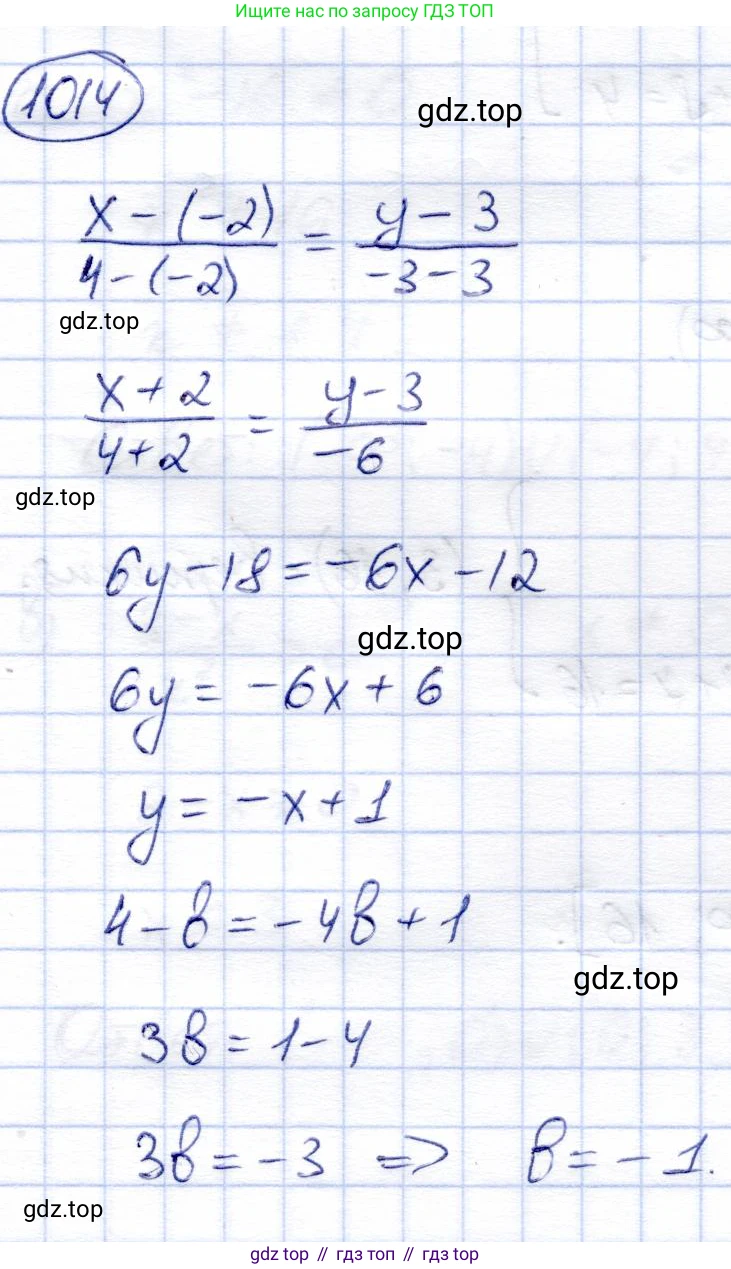 Ищите нас по запросу ГДЗ ТОП
1014
gdz.top
x - (-2) / 4 - (-2) = y - 3 / -3 - 3
gdz.top
x + 2 / 4 + 2 = y - 3 / -6
gdz.top
6y - 18 = -6x - 12
gdz.top
6y = -6x + 6
y = -x + 1
4 - b = -4b + 1
gdz.top
3b = 1 - 4
3b = -3 => b = -1.
gdz.top
gdz top // гдз топ // gdz top